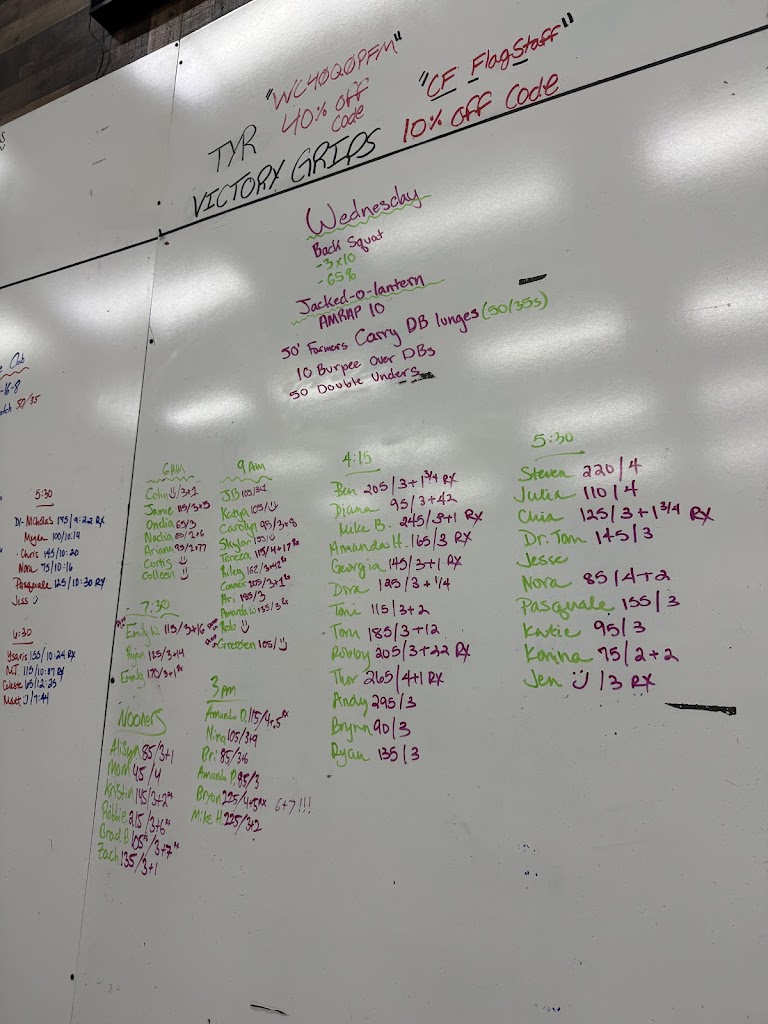 "WC40Q0PFM"
"CF FlagStaff"
TYR 40% off Code
VICTORY GRIPS 10% off Code
Wednesday
Back Squat
-3x10
-65%
Jacked-o-lantern
AMRAP 10
50' Farmers Carry DB lunges (50/35s)
10 Burpee Over DBs
50 Double Unders
6AM
Colin 3+1
Jamie
Ondia 65/3
Nadia
Ariana
Curtis
Colleen
7:30
Emily W. 115/3+16
Ryan 125/3+14
Emily 170/3+1
Nooners
Alisyn 85/3+1
Mom 45/4
Kristin 145/3+2
Robbie 215/3+6
Brad B 105 /3+7
Zach 135/3+1
9AM
JB
Katya 105/
Carolyn 95/3+8
Skylar
Tereza 115/4+17
Riley
Conner 205/3+1
Ari 135/3
Amanda W 135/3
Rob
Gretchen 105/
3PM
Amanda D. 115/4+5
Nina 105/3+9
Bri 85/3+6
Amanda P. 95/3
Bryan 225/4+5 RX 6+7!!!
Mike H. 225/3+2
4:15
Ben 205/3+1 3/4 RX
Diana 95/3+42
Mike B. 245/3+1 RX
Amanda H. 165/3 RX
Georgia 145/3+1 RX
Dora 125/3+1/4
Toni 115/3+2
Tom 185/3+12
Robby 205/3+22 RX
Thor 265/4+1 RX
Andy 295/3
Brynn 90/3
Ryan 135/3
5:30
Steven 220/4
Julia 110/4
Chia 125/3+1 3/4 RX
Dr. Tom 145/3
Jesse
Nora 85/4+2
Pasquale 155/3
Katie 95/3
Karina 75/2+2
Jen /3 RX
Club
-16-8
50/35
5:30
Dr. Nicholas 145/9:22 RX
Myla 100/10:14
Chris 145/10:20
Nora 75/10:16
Pasquale 125/10:30 RX
Jess
6:30
Ysaris 155/10:24 RX
MT 115/10:07 RX
Celeste 65/12:25
Matt /7:44